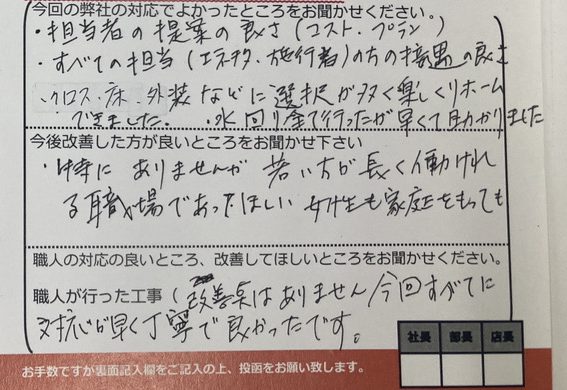 今回の弊社の対応でよかったところをお聞かせください。
・担当者の提案の良さ（コスト・プラン）
・すべての担当（エネチタ、施行者）の方の接遇の良さ
・クロス・床・外装などに選択が多く楽しくリホーム
できました。 ・水回り全て行ったが早くて助かりました
今後改善した方が良いところをお聞かせ下さい
・特にありませんが 若い方が長く働けれ
る職場であってほしい 女性も家庭をもっても
職人の対応の良いところ、改善してほしいところをお聞かせください。
職人が行った工事（改善点はありません／今回すべてに
対応が早く丁寧で良かったです。
社長 部長 店長
お手数ですが裏面記入欄をご記入の上、投函をお願い致します。